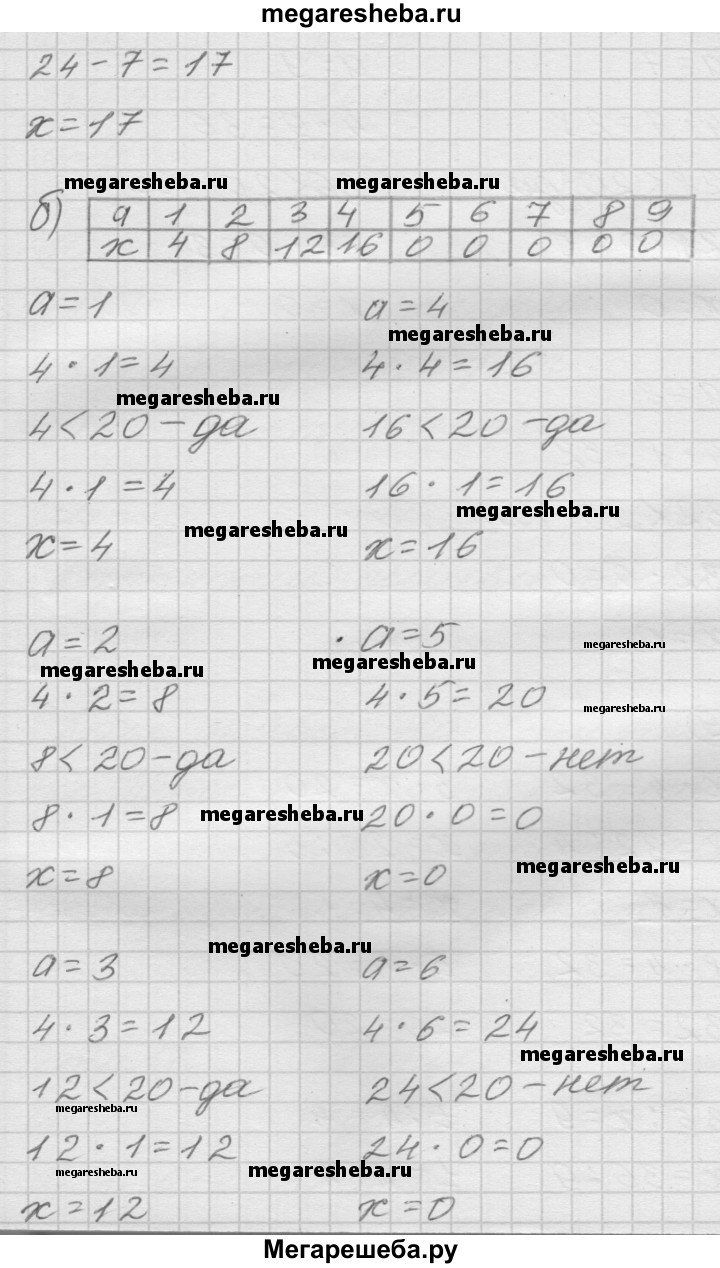 megaresheba.ru
24 - 7 = 17
x = 17
megaresheba.ru megaresheba.ru
б) a 1 2 3 4 5 6 7 8 9
x 4 8 12 16 0 0 0 0 0
a = 1 a = 4
megaresheba.ru
4 · 1 = 4 4 · 4 = 16
megaresheba.ru
4 < 20 - да 16 < 20 - да
4 · 1 = 4 16 · 1 = 16
megaresheba.ru
megaresheba.ru
x = 4 x = 16
a = 2 a = 5
megaresheba.ru
megaresheba.ru megaresheba.ru
4 · 2 = 8 4 · 5 = 20
megaresheba.ru
8 < 20 - да 20 < 20 - нет
8 · 1 = 8 megaresheba.ru 20 · 0 = 0
megaresheba.ru
x = 8 x = 0
megaresheba.ru
a = 3 a = 6
4 · 3 = 12 4 · 6 = 24
megaresheba.ru
12 < 20 - да 24 < 20 - нет
megaresheba.ru
12 · 1 = 12 24 · 0 = 0
megaresheba.ru megaresheba.ru
x = 12 x = 0
Мегарешеба.ру